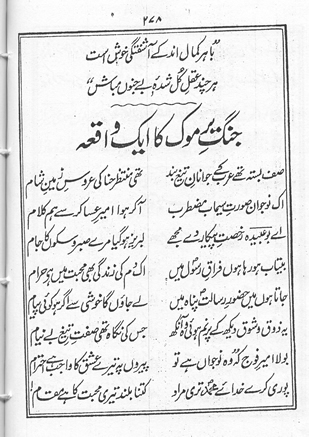 ۲۷۸
"با ہر کمال اندکے آشفتگی خوش است
ہر چند عقلِ کُل شدۂ بے جنوں مباش"
جنگِ یرموک کا ایک واقعہ
صف بستہ تھے عرب کے جوانانِ تیغ بند تھی منتظر حنا کی عروسِ زمینِ شام
اک نوجوان صورتِ سیماب مضطرب آ کر ہوا امیرِ عساکر سے ہم کلام
اے بوعبیدہ رخصتِ پیکار دے مجھے لبریز ہو گیا مرے صبر و سکوں کا جام
بیتاب ہو رہا ہوں فراقِ رسول میں اک دم کی زندگی بھی محبت میں ہے حرام
جاتا ہوں میں حضورِ رسالت پناہ میں لے جاؤں گا خوشی سے اگر ہو کوئی پیام
یہ ذوق و شوق دیکھ کے پرنم ہوئی وہ آنکھ جس کی نگاہ تھی صفتِ تیغِ بے نیام
بولا امیرِ فوج کہ وہ نوجواں ہے تو پیروں پہ تیرے عشق کا واجب ہے احترام
پوری کرے خدائے محمدؐ تری مراد کتنا بلند تیری محبت کا ہے مقام